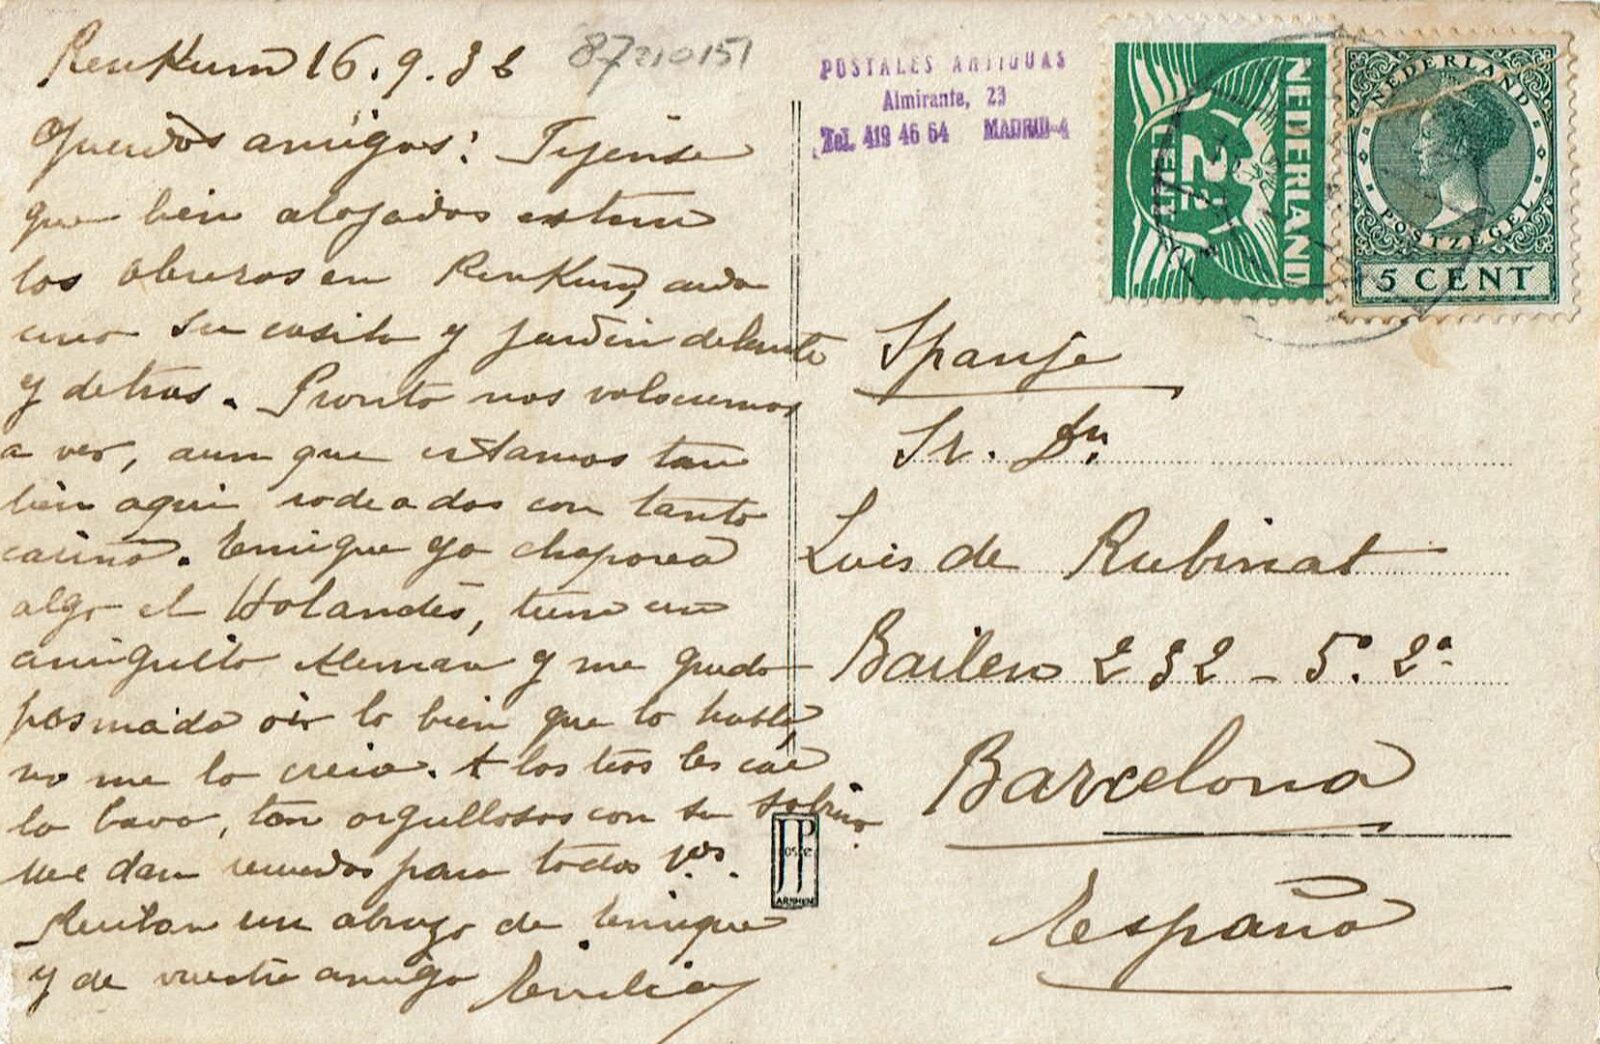 Renkum 16.9.36
87210151
Queridos amigos: Fijense
que bien alojados estan
los obreros en Renkum, cada
uno su casita y jardin delante
y detras. Pronto nos volveremos
a ver, aun que estamos tan
bien aqui rodeados con tanto
cariño. Enrique ya chaporea
algo el Holandés, tiene un
amiguito Aleman y me quedo
pasmada oir lo bien que lo habla,
no me lo creia. A los tios les cae
la bava, tan orgullosos con su sobrino.
Me dan recuerdos para todos Vds.
Reciban un abrazo de Enrique
y de vuestra amiga Emilia
POSTALES ANTIGUAS
Almirante, 23
Tel. 419 46 64 MADRID-4
NEDERLAND
2½
CENT
NEDERLAND
POSTZEGEL
5 CENT
Spanje
Sr. Dn.
Luis de Rubinat
Bailen 232 - 5º. 2ª.
Barcelona
España
JP
ARNHEM